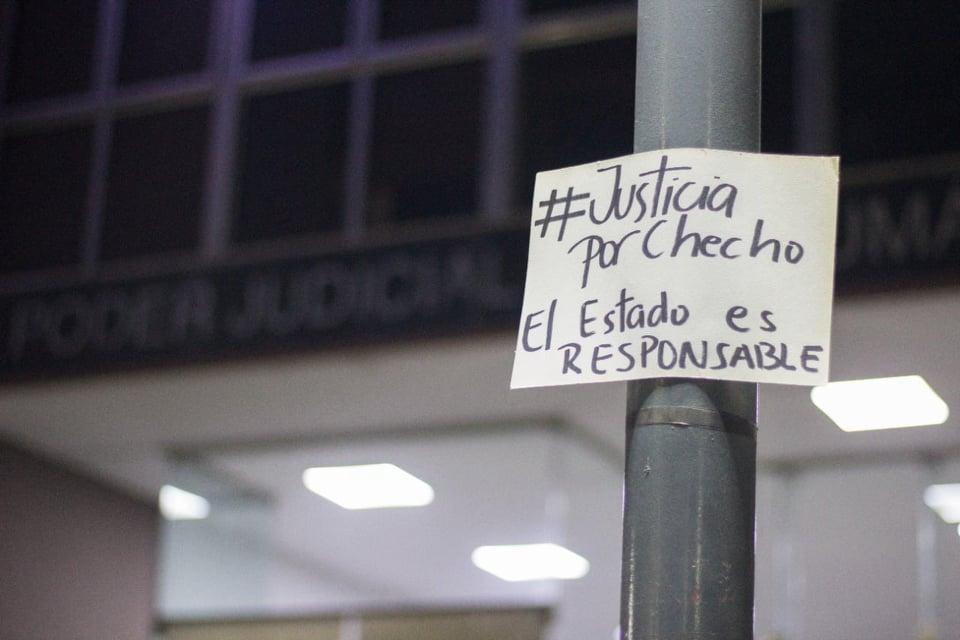 #Justicia
por Checho
El Estado es
RESPONSABLE
PODER JUDICIAL